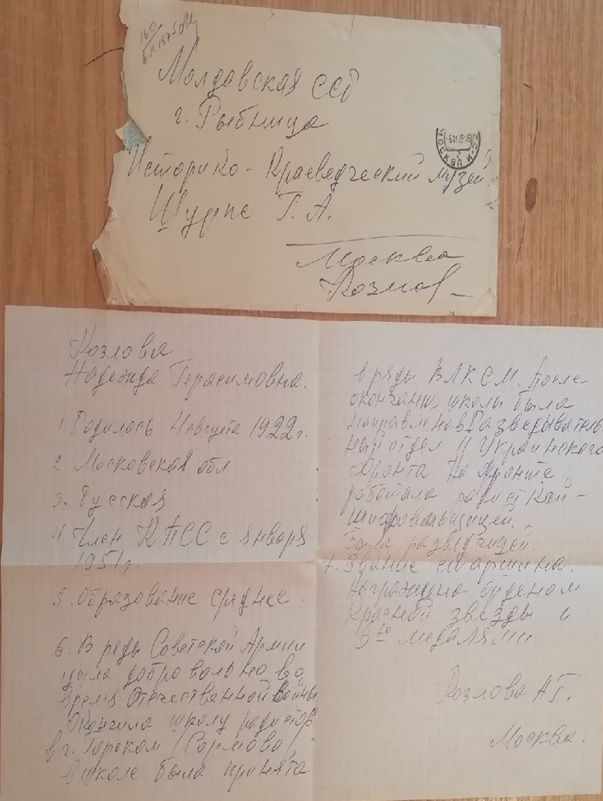 Молдавская ССР
г. Рыбница
Историко-Краеведческий музей
Шурпе Г. А.
Москва
Козлов
Козлова
Надежда Герасимовна.
1. Родилась 1922 г.
2. Московская обл.
3. Русская
4. Член КПСС с января
1951 г.
5. образование среднее.
6. В ряды Советской Армии
ушла добровольно во
время Отечественной войны
окончила школу радистов
в г. Горьком (Сормово)
в школе была принята
в ряды ВЛКСМ. После
окончания школы была
направлена в Разведыватель
ный отдел II Украинского
фронта. На фронте
работала радисткой-
шифровальщицей.
Была разведчицей.
7. Звание старшина.
Награждена орденом
Красной звезды и
5ю медалями
Козлова
Москва.